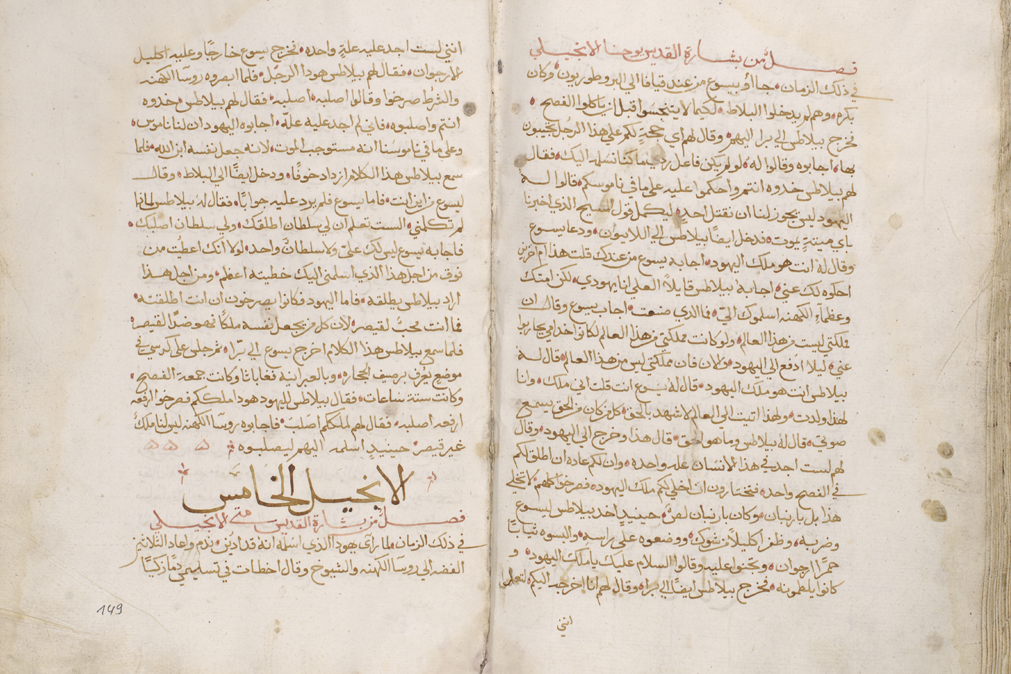 فصل من بشارة القديس يوحنا الانجيلي
في ذلك الزمان جاؤو بيسوع من عند قيافا الي البروطوريون وكان
بكره وهم لم يدخلوا البلاط لكيما لا يتنجسوا قبل ان ياكلوا الفصح
فخرج بيلاطس الي برا اليهم وقال لهم اي حجة لكم علي هذا الرجل يجيبون
بها اجابوه وقالوا له لو لم يكن فاعل ردي ما كنا نسلمه اليك فقال
لهم بيلاطس خدوه انتم واحكموا عليه علي ما في ناموسكم قالوا له
اليهود ليس يجوز لنا ان نقتل احد ليكمل قول المسيح الذي اخبرنا
باي ميتة يموت فدخل ايضًا بيلاطس الي الايوان ودعا يسوع
وقال له انت هو ملك اليهود اجابه يسوع من عندك قلت هذا ام اخرين
احكوه لك عني اجابه بيلاطس قايلًا العلي انا يهودي لكن امتك
وعظماء الكهنه اسلموك الي فما الذي صنعت اجاب يسوع وقال ان
مملكتي ليست من هذا العالم ولو كانت مملكتي من هذا العالم لكانوا خدامي يحاربوا
عني ليلا ادفع الي اليهود والان فان مملكتي ليس من هذا العالم قال له
بيلاطس انت هو ملك اليهود قال له يسوع انت قلت اني ملك وانا
لهذا ولدت ولهذا اتيت الي العالم لاشهد بالحق كل من كان من الحق يسمع
صوتي قال له بيلاطس وما هو الحق قال هذا وخرج الي اليهود وقال
لهم لست اجد في هذا الانسان علة واحده وان لكم عاده ان اطلق لكم
في الفصح واحد فتختارون ان اخلي لكم ملك اليهود فصرخوا كلهم لا تخلي
هذا بل باربنان وكان باربنان لص حينيدٍ اخد بيلاطس ليسوع
وضربه وظفر اكليلًا من شوك ووضعوه علي راسه والبسوه ثيابًا
حمرًا ارجوان وكانوا يلطمونه فخرج بيلاطس ايضًا الي برا وقال لهم انا اخرجه اليكم لتعلموا
انني
انني لست اجد عليه علةٍ واحده فخرج يسوع خارجًا وعليه اكليل
الارجوان فقال لهم بيلاطس هودا الرجل فلما ابصروه روسا الكهنه
والشرط صرخوا وقالوا اصلبه اصلبه فقال لهم بيلاطس خدوه
انتم واصلبوه فاني لم اجد عليه علة اجابوه اليهود ان لنا ناموس
وعلي ما في ناموسنا انه مستوجب الموت لانه جعل نفسه ابن الله فلما
سمع بيلاطس هذا الكلام ازداد خوفًا ودخل ايضًا الي البلاط وقال
ليسوع من اين انت فاما يسوع فلم يرد عليه جوابًا فقال له بيلاطس لماذا
لم تكلمني الست تعلم ان لي سلطان اطلقك ولي سلطان اصلبك
فاجابه يسوع ليس لك علي ولا سلطانٌ واحد لولا انك اعطيت من
فوق من اجل هذا الذي اسلمني اليك خطيته اعظم ومن اجل هذا
اراد بيلاطس يطلقه فاما اليهود فكانوا يصرخون ان انت اطلقته
فما انت محبٌ لقيصر لان كل من يجعل نفسه ملكًا فهو ضدًا لقيصر
فلما سمع بيلاطس هذا الكلام اخرج يسوع الي برّا ثم جلس علي كرسي في
موضع يعرف برصيف الحجاره وبالعبرانية غاباثا وكانت جمعة الفصح
وكانت ستة ساعات فقال بيلاطس لليهود هودا ملككم فصرخوا ارفعه
ارفعه اصلبه فقال لهم لملككم اصلب فاجابوه روسا الكهنه ليس لنا ملك
غير قيصر حينيدٍ اسلمه اليهم ليصلبوه
الانجيل الخامس
فصل من بشارة القديس متي الانجيلي
في ذلك الزمان لما راي يهودا الذي اسلمه انه قد ادين ندم واعاد الثلاثين
الفضه الي روسا الكهنه والشيوخ وقال اخطات في تسليمي دمًا زكيًا
149